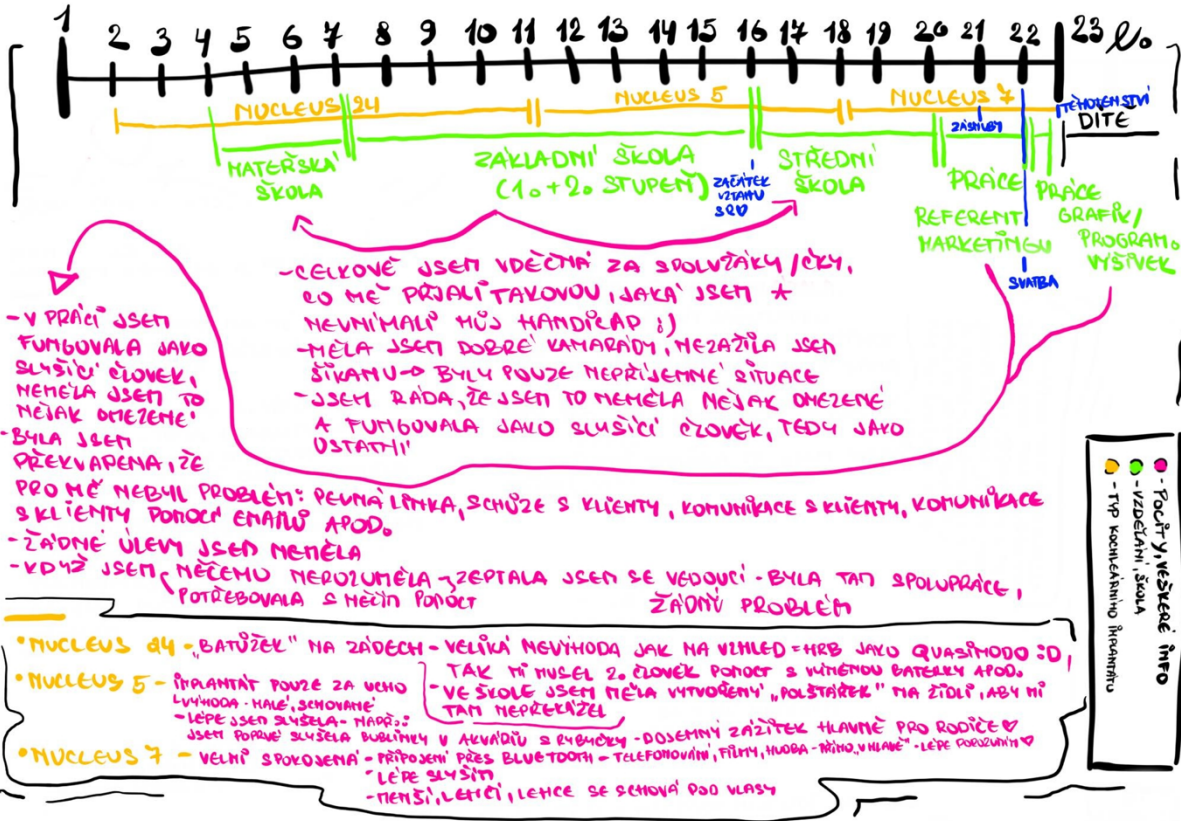 1 2 3 4 5 6 7 8 9 10 11 12 13 14 15 16 17 18 19 20 21 22 23 l.
NUCLEUS 24
NUCLEUS 5
NUCLEUS 7
TĚHOTENSTVÍ
DÍTĚ
ZÁSNUBY
MATEŘSKÁ
ŠKOLA
ZÁKLADNÍ ŠKOLA
(1. + 2. STUPEŇ)
ZAČÁTEK
VZTAHU
SRO
STŘEDNÍ
ŠKOLA
PRÁCE
REFERENT
MARKETINGU
SVATBA
PRÁCE
GRAFIK/
PROGRAM.
VÝŠIVEK
- CELKOVĚ JSEM VDĚČNÁ ZA SPOLUŽÁKY/ČKY,
CO MĚ PŘJALI TAKOVOU, JAKÁ JSEM *
NEVNÍMALI MŮJ HANDICAP :)
- MĚLA JSEM DOBRÉ KAMARÁDY, NEZAŽILA JSEM
ŠIKANU → BYLY POUZE NEPŘÍJEMNÉ SITUACE
- JSEM RÁDA, ŽE JSEM TO NEMĚLA NĚJAK OMEZENÉ
A FUNGOVALA JAKO SLYŠÍCÍ ČLOVĚK, TEDY JAKO
OSTATNÍ
- V PRÁCI JSEM
FUNGOVALA JAKO
SLYŠÍCÍ ČLOVĚK,
NEMĚLA JSEM TO
NĚJAK OMEZENÉ
- BYLA JSEM
PŘEKVAPENA, ŽE
PRO MĚ NEBYL PROBLÉM: PEVNÁ LINKA, SCHŮZE S KLIENTY, KOMUNIKACE S KLIENTY, KOMUNIKACE
S KLIENTY POMOCÍ EMAILŮ APOD.
- ŽÁDNÉ ÚLEVY JSEM NEMĚLA
- KDYŽ JSEM NĚČEMU NEROZUMĚLA → ZEPTALA JSEM SE VEDOUCÍ - BYLA TAM SPOLUPRÁCE,
POTŘEBOVALA S NĚČÍM POMOCT
ŽÁDNÝ PROBLÉM
• NUCLEUS 24 - „BATŮŽEK" NA ZÁDECH - VELIKÁ NEVÝHODA JAK NA VZHLED = HRB JAKO QUASIMODO :D,
TAK MI MUSEL 2. ČLOVĚK POMOCT S VÝMĚNOU BATERKY APOD.
- VE ŠKOLE JSEM MĚLA VYTVOŘENÝ „POLŠTÁŘEK" NA ŽIDLI, ABY MI
TAM NEPŘEKÁŽEL
• NUCLEUS 5 - IMPLANTÁT POUZE ZA UCHO
VÝHODA - MALÉ, SCHOVANÉ
- LÉPE JSEM SLYŠELA - NAPŘ.:
JSEM POPRVÉ SLYŠELA BUBLINKY V AKVÁRIU S RYBIČKY - DOJEMNÝ ZÁŽITEK HLAVNĚ PRO RODIČE ♡
• NUCLEUS 7 - VELMI SPOKOJENÁ - PŘIPOJENÍ PŘES BLUETOOTH - TELEFONOVÁNÍ, FILMY, HUDBA - PŘÍMO „V HLAVĚ" - LÉPE POROZUMÍM ♡
- LÉPE SLYŠÍM
- MENŠÍ, LEHČÍ, LEHCE SE SCHOVÁ POD VLASY
- POCITY, VEŠKERÉ INFO
- VZDĚLÁNÍ, ŠKOLA
- TYP KOCHLEÁRNÍHO IMPLANTÁTU